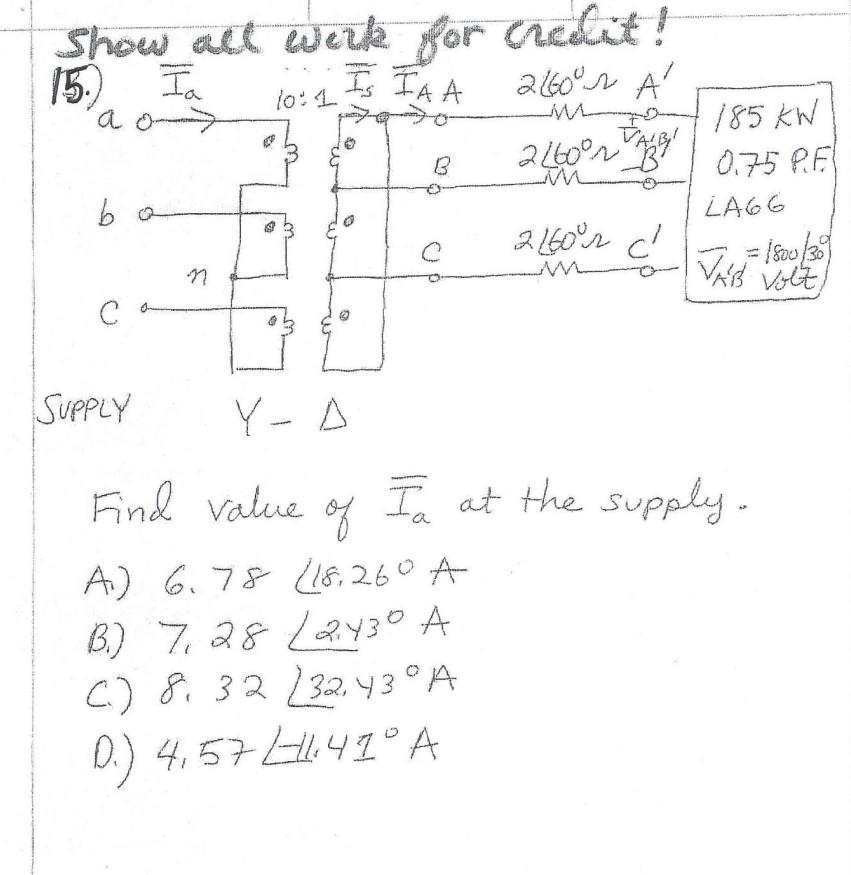 Show all work for credit!
15.) I̅a 10:1 I̅s I̅A A 2∠60°Ω A'
a
+ V̅A'B' -
185 KW
B 2∠60°Ω B'
0.75 P.F.
LAGG
b
C 2∠60°Ω C'
V̅A'B' = 1800∠30° Volt
n
C
SUPPLY Y - Δ
Find value of I̅a at the supply.
A.) 6.78 ∠18.26° A
B.) 7.28 ∠2.43° A
C.) 8.32 ∠32.43° A
D.) 4.57 ∠-11.41° A